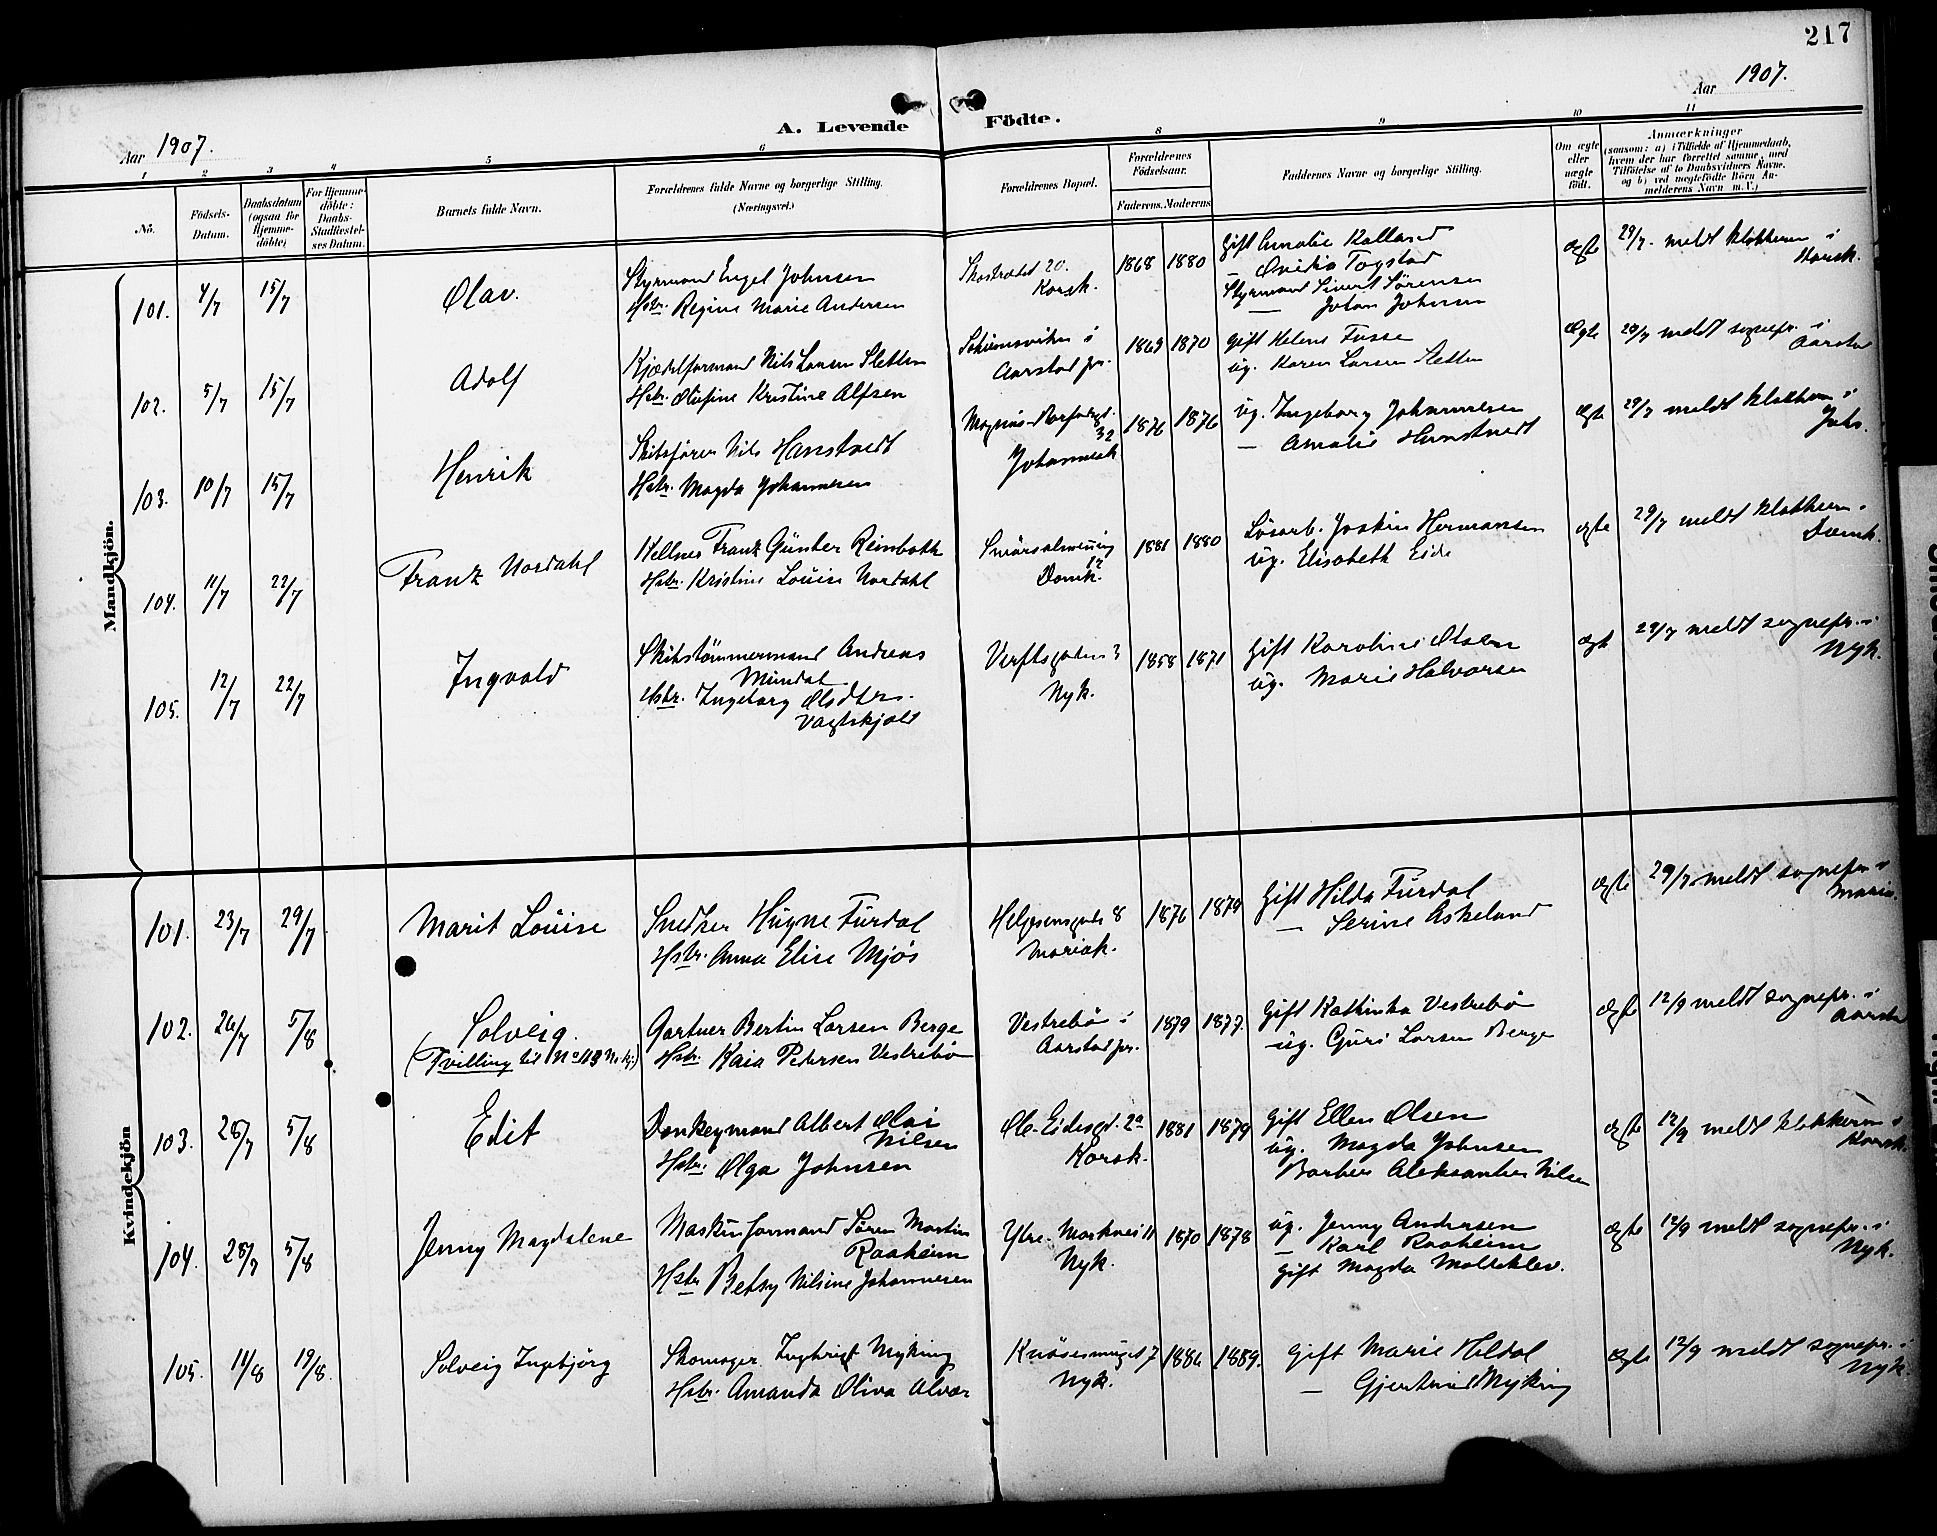 217
Aar 1907.
A. Levende Födte.
Aar 1907.
1 2 3 4 5 6 8 9 10 11
No.
Födsels-Datum.
Daabsdatum (ogsaa for Hjemme-döbte)
For Hjemme-döbte: Daabs-Stadfæstel-ses Datum.
Barnets fulde Navn.
Forældrenes fulde Navne og borgerlige Stilling.
(Næringsvei.)
Forældrenes Bopæl.
Forældrenes Födselsaar.
Faderens. Moderens
Faddernes Navne og borgerlige Stilling.
Om ægte eller uægte födt.
Anmærkninger
(saasom: a) i Tilfælde af Hjemmedaab,
hvem der har forrettet samme, med
Tilföielse af to Daabsvidners Navne.
og b) ved uægtefödte Börn An-
melderens Navn m. V.)
Mandkjön.
101. 4/7 15/7
Olav.
Styrmand Engel Johnsen
Hstr. Regine Marie Andersen
Skostrædet 20.
Korsk.
1868 1880
Gift Amalie Kalland
— Ovidia Togstad
Styrmand Sivert Sörensen
— Johan Johnsen
ægte
29/7. meldt klokkeren i
Korsk.
102. 5/7 15/7
Adolf
Kjedelformand Nils Larsen Sletten
Hstr. Olufine Kristine Alfsen
Aarstad pr.
1869 1870
Gift Helene Fosse
ug. Karen Larsen Sletten
Ægte
29/7 meldt sognepr. i
Aarstad
103. 10/7 15/7
Henrik
Skibsförer Nils Hanstvedt
Hstr. Magda Johannesen
32
Johannesk
1876 1876
ug. Ingeborg Johannesen
— Amalie Hanstvedt
ægte
29/7 meldt klokkeren i
Johs.
104. 11/7 22/7
Franz Nordahl
Kellner Franz Günther Reinboth
Hstr. Kristine Louise Nordahl
Smörsalmening
12
Domk.
1881 1880
Lösarb. Joakim Hermansen
ug. Elisabeth Eide
ægte
29/7 meldt klokkeren i
Domk.
105. 12/7 22/7
Ingvald
Skibstömmermand Andreas
Mundal
Hstr. Ingeborg Olsdtr.
Vagtskjold
Verftsgaden 3
Nyk.
1858 1871
Gift Karoline Olsen
ug. Marie Halvorsen
ægte
29/7 meldt sognepr. i
Nyk.
Kvindekjön
101. 23/7 29/7
Marit Louise
Snedker Hugne Furdal
Hstr. Anna Elise Mjös
Helgesensgade 8
Mariak.
1876 1879
Gift Hilda Furdal
— Serine Askeland
ægte
29/7. meldt sognepr. i
Maria.
102. 26/7 5/8
Solveig.
(Tvilling til No 113 )
Gartner Bertin Larsen Berge
Hstr. Kaia Petersen Vestrebö
Vestrebö i
Aarstad pr.
1879 1877.
Gift Kathinka Vestrebö
ug. Guri Larsen Berge
ægte
12/9 meldt sognepr. i
Aarstad
103. 28/7 5/8
Edit
Donkeymand Albert Olai
Nilsen
Hstr. Olga Johnsen
Ole-Eidesgd. 2a
Korsk.
1881 1879
Gift Ellen Olsen
ug. Magda Johnsen
Barber Aleksander Nilsen
ægte
12/9 meldt klokkeren i
Korsk.
104. 28/7 5/8
Jenny Magdalene
Maskinformand Sören Martin
Raaheim
Hstr Betsy Nilsine Johannesen
Ytre-Markvei 11
Nyk.
1870 1878
ug. Jenny Andersen
— Karl Raaheim
Gift Magda Molteklev.
ægte
12/9 meldt sognepr. i
Nyk.
105. 11/8 19/8.
Solveig Ingebjörg
Skomager Ingbrigt Myking
Hstr. Amanda Oliva Alvær
Knösesmuget 7
Nyk.
1886 1889.
Gift Marie Hildal
— Gjertrud Myking
ægte
12/9 meldt sognepr. i
Nyk.